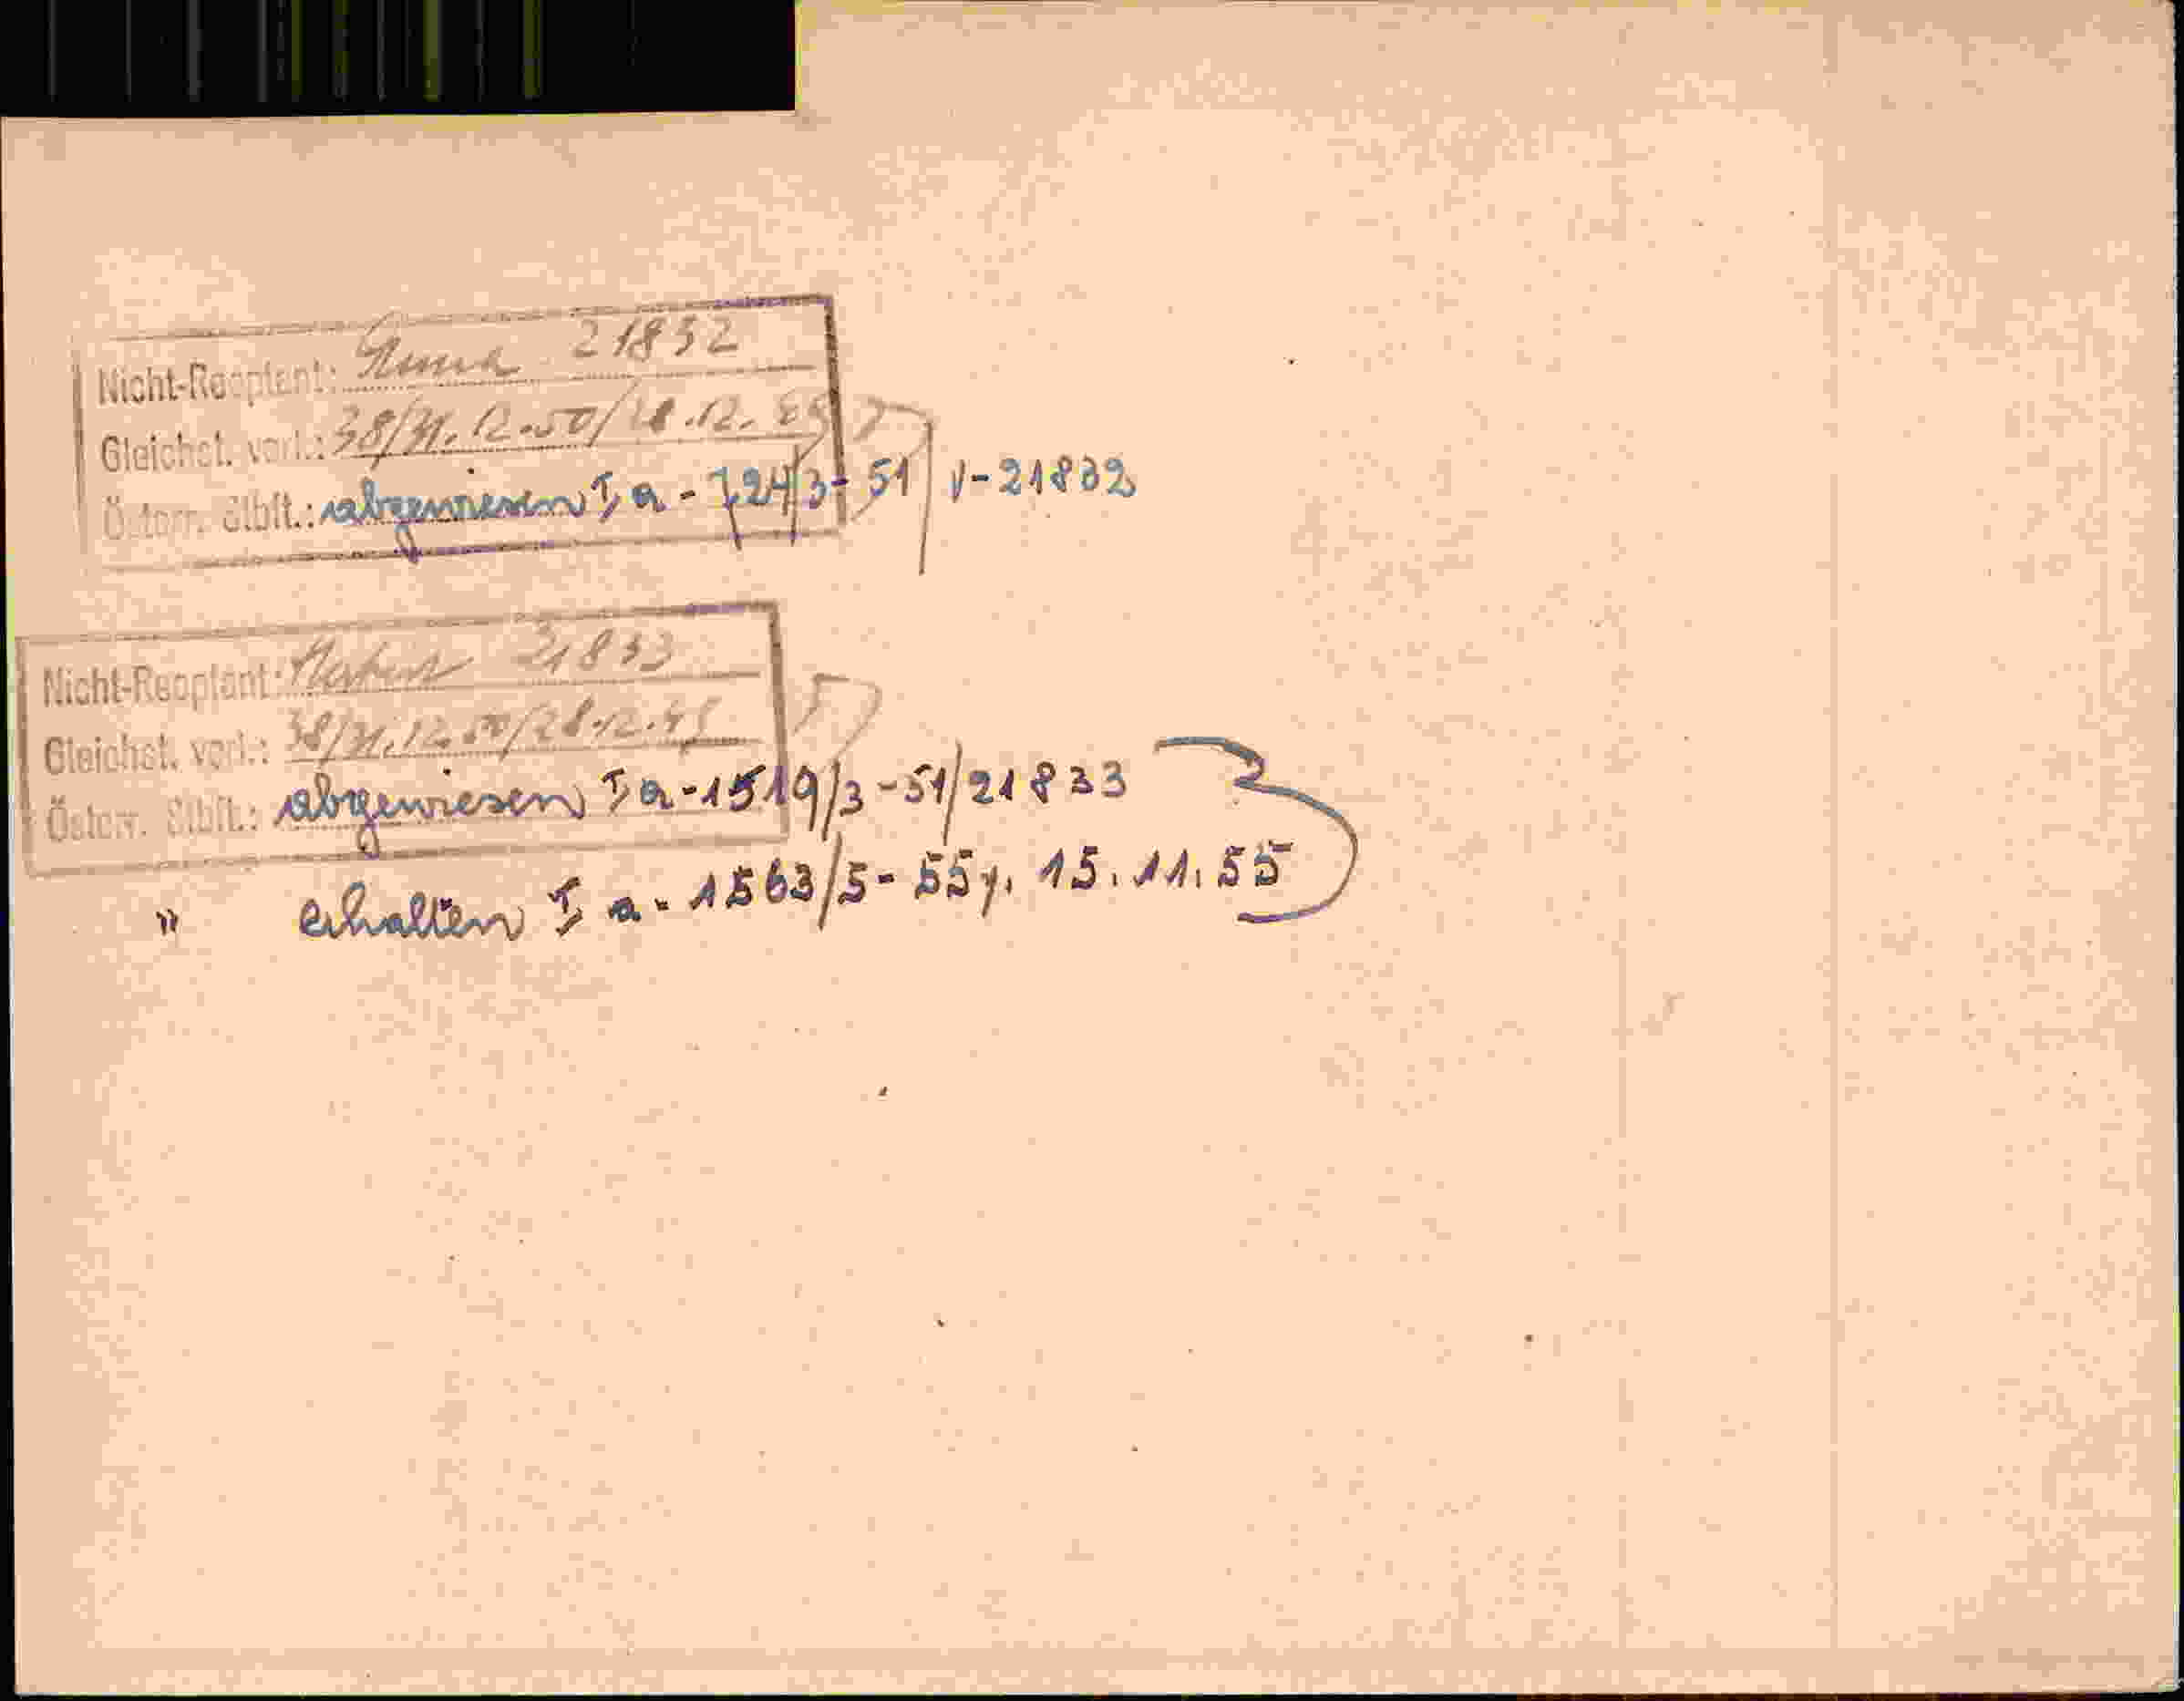 Nicht-Reoptant: Anna 21832
Gleichst. verl.: 38/31.12.50/28.12.
Österr. Stbft.: abgewiesen Ia - 724/3-51/V-21832
Nicht-Reoptant: 21833
Gleichst. verl.: 38/31.12.50/28.12.49
Österr. Stbft.: abgewiesen Ia-1519/3-51/21833
" erhalten Ia-1563/5-55, 15.11.55